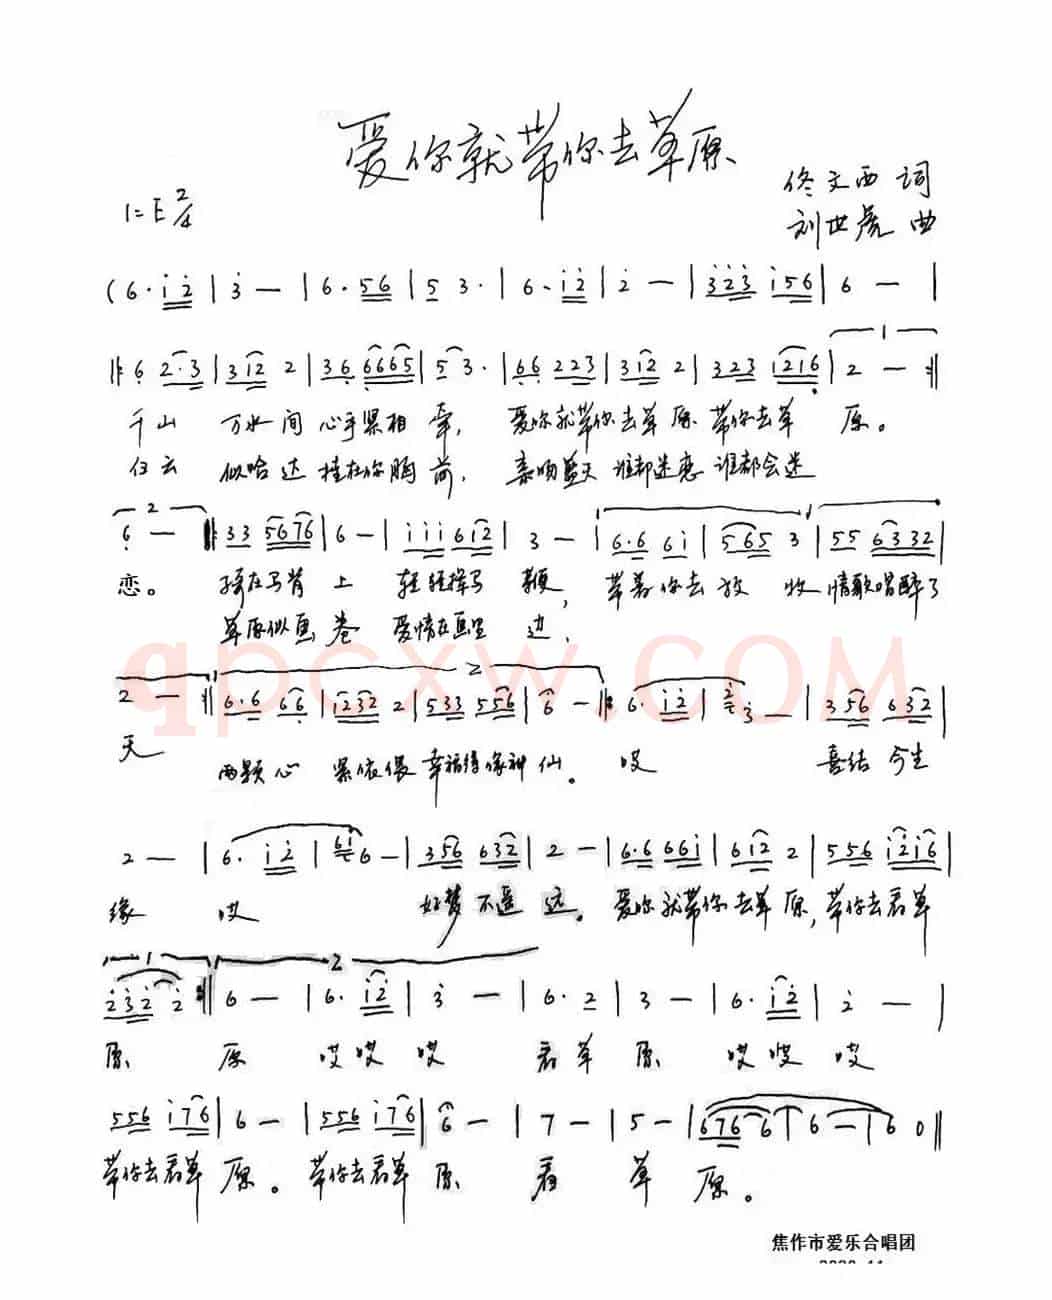 爱你就带你去草原
1=E 2/4
佟文西 词
刘世虎 曲
(6· i 2 | 3 — | 6· 5 6 | 5 3· | 6· i 2 | 2 — | 3 2 3 i 5 6 | 6 — |
6 2·3 | 3 i 2 2 | 3 6 6 6 6 5 | 5 3· | 6 6 2 2 3 | 3 i 2 2 | 3 2 3 i 2 i 6 | 2 — :||
千山 万水 间 心手紧相 牵, 爱你就带你去草原 带你去草 原。
白云 似哈达 挂在你胸 前, 亲吻蓝天 谁都迷恋 谁都会迷
6 — 3 3 5 6 7 6 | 6 — | i i i 6 i 2 | 3 — | 6·6 6 i | 5 6 5 3 | 5 5 6 3 3 2 |
恋。 骑在马背 上 轻轻挥马 鞭, 带着你去 放 牧 情歌唱醉了
草原似画 卷 爱情在画里 边,
2 — :|| 6·6 6 6 | i 2 3 2 2 | 5 3 3 5 5 6 | 6 — 6· i 2 | 2 3 — | 3 5 6 6 3 2 |
天 两颗心 紧依偎 幸福得像神仙。 哎 喜结 今生
2 — | 6· i 2 | 6 i 6 — | 3 5 6 6 3 2 | 2 — | 6·6 6 6 i | 6 i 2 2 | 5 5 6 i 2 i 6 |
缘 哎 好梦 不遥 远。 爱你就带你去草 原, 带你去看草
2 3 2 2 :|| 6 — | 6· i 2 | 3 — | 6· 2 | 3 — | 6· i 2 | 2 — |
原 原 哎哎 哎 看草 原 哎哎 哎
5 5 6 i 7 6 | 6 — | 5 5 6 i 7 6 | 6 — | 7 — | 5 — | 6 7 6 6 | 6 — | 6 0 ||
带你去看草 原。 带你去看草 原 看 草 原。
qpcxw.com
焦作市爱乐合唱团